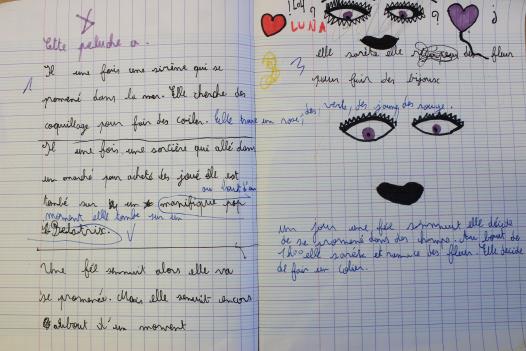 Cette peluche a.
Il une fois une sirène qui se
promené dans la mer. Elle cherche des
coquillage pour fair des colier. Elle trouve un rose,
des verts, des jaune, des rouge.
Il une fois, une sorcière qui allé dans
un marché pour acheté des joué elle est
au bout d'un
tombé sur un manifique pop
moment elle tombe sur un
Beelatrix.
Une fée sennuit alors elle va
se promenée. Mais elle senuit encore
au bout d'un moment
LUNA
elle sarète elle fleur
pour fair des bijoux
Un jour une fée sennuit elle décide
de se promené dans des champs. Au bout de
1h00 elle sarète et ramace des fleur. Elle décide
de fair un colier.